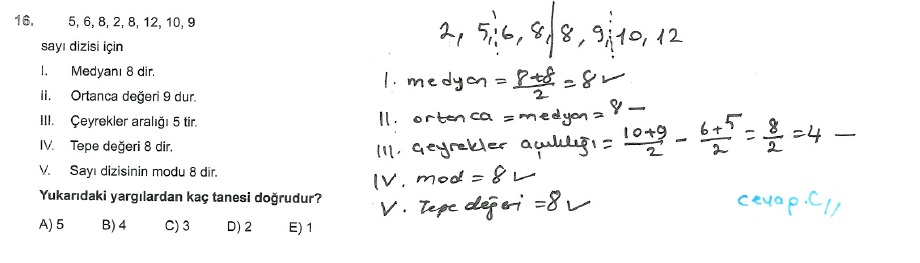 16. 5, 6, 8, 2, 8, 12, 10, 9
sayı dizisi için
I. Medyanı 8 dir.
II. Ortanca değeri 9 dur.
III. Çeyrekler aralığı 5 tir.
IV. Tepe değeri 8 dir.
V. Sayı dizisinin modu 8 dir.
Yukarıdaki yargılardan kaç tanesi doğrudur?
A) 5 B) 4 C) 3 D) 2 E) 1
2, 5, 6, 8, 8, 9, 10, 12
I. medyan = 8+8/2 = 8 ✓
II. ortanca = medyan = 8 —
III. çeyrekler açıklığı = 10+9/2 - 6+5/2 = 8/2 = 4 —
IV. mod = 8 ✓
V. Tepe değeri = 8 ✓
cevap.C//